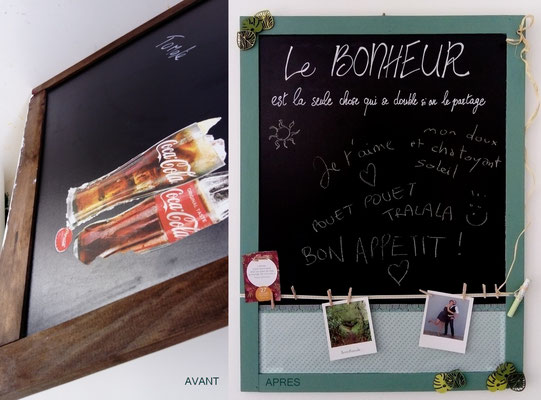 Coca-Cola
Coca-Cola
AVANT
Le BONHEUR
est la seule chose qui se double si on le partage
Je t'aime
mon doux
et chatoyant
soleil
POUET POUET
TRALALA
BON APPETIT !
APRES